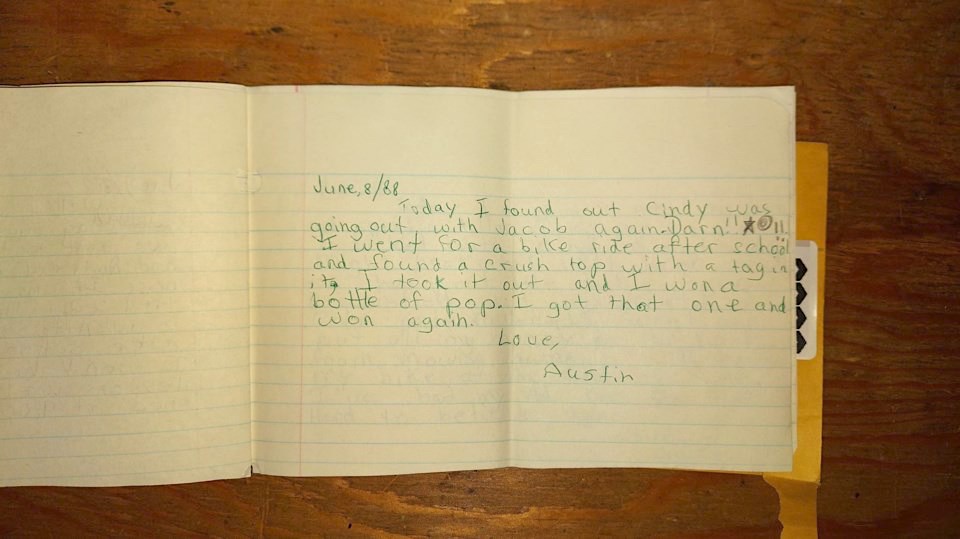 June,8/88
Today I found out Cindy was
going out with Jacob again. Darn!! ★@!!
I went for a bike ride after school
and found a crush top with a tag in
it, I took it out and I won a
bottle of pop. I got that one and
won again.
Love,
Austin